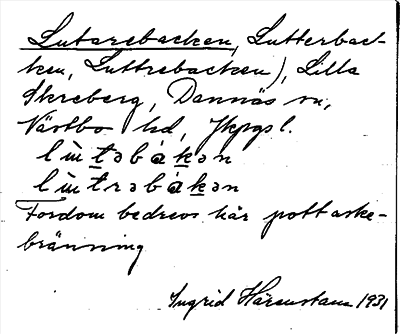 Lutarebacken, Lutterbac-
ken, Luttrebacken), Lilla
Skreberg, Dannäs sn,
Västbo hd, Jkpgs l.
lùt̲əbákən
lùt̲rəbák̲ən
Fordom bedrevs här pottaske-
bränning
Ingrid Härenstam 1931